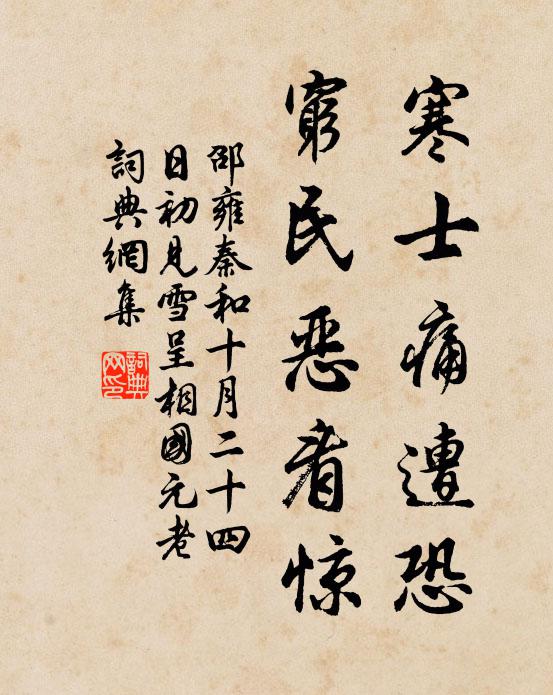 寒士痛遭恐
窮民惡著惊
邵雍秦和十月二十四
日初見雪呈相國元老
詞典網集
詞典
网印